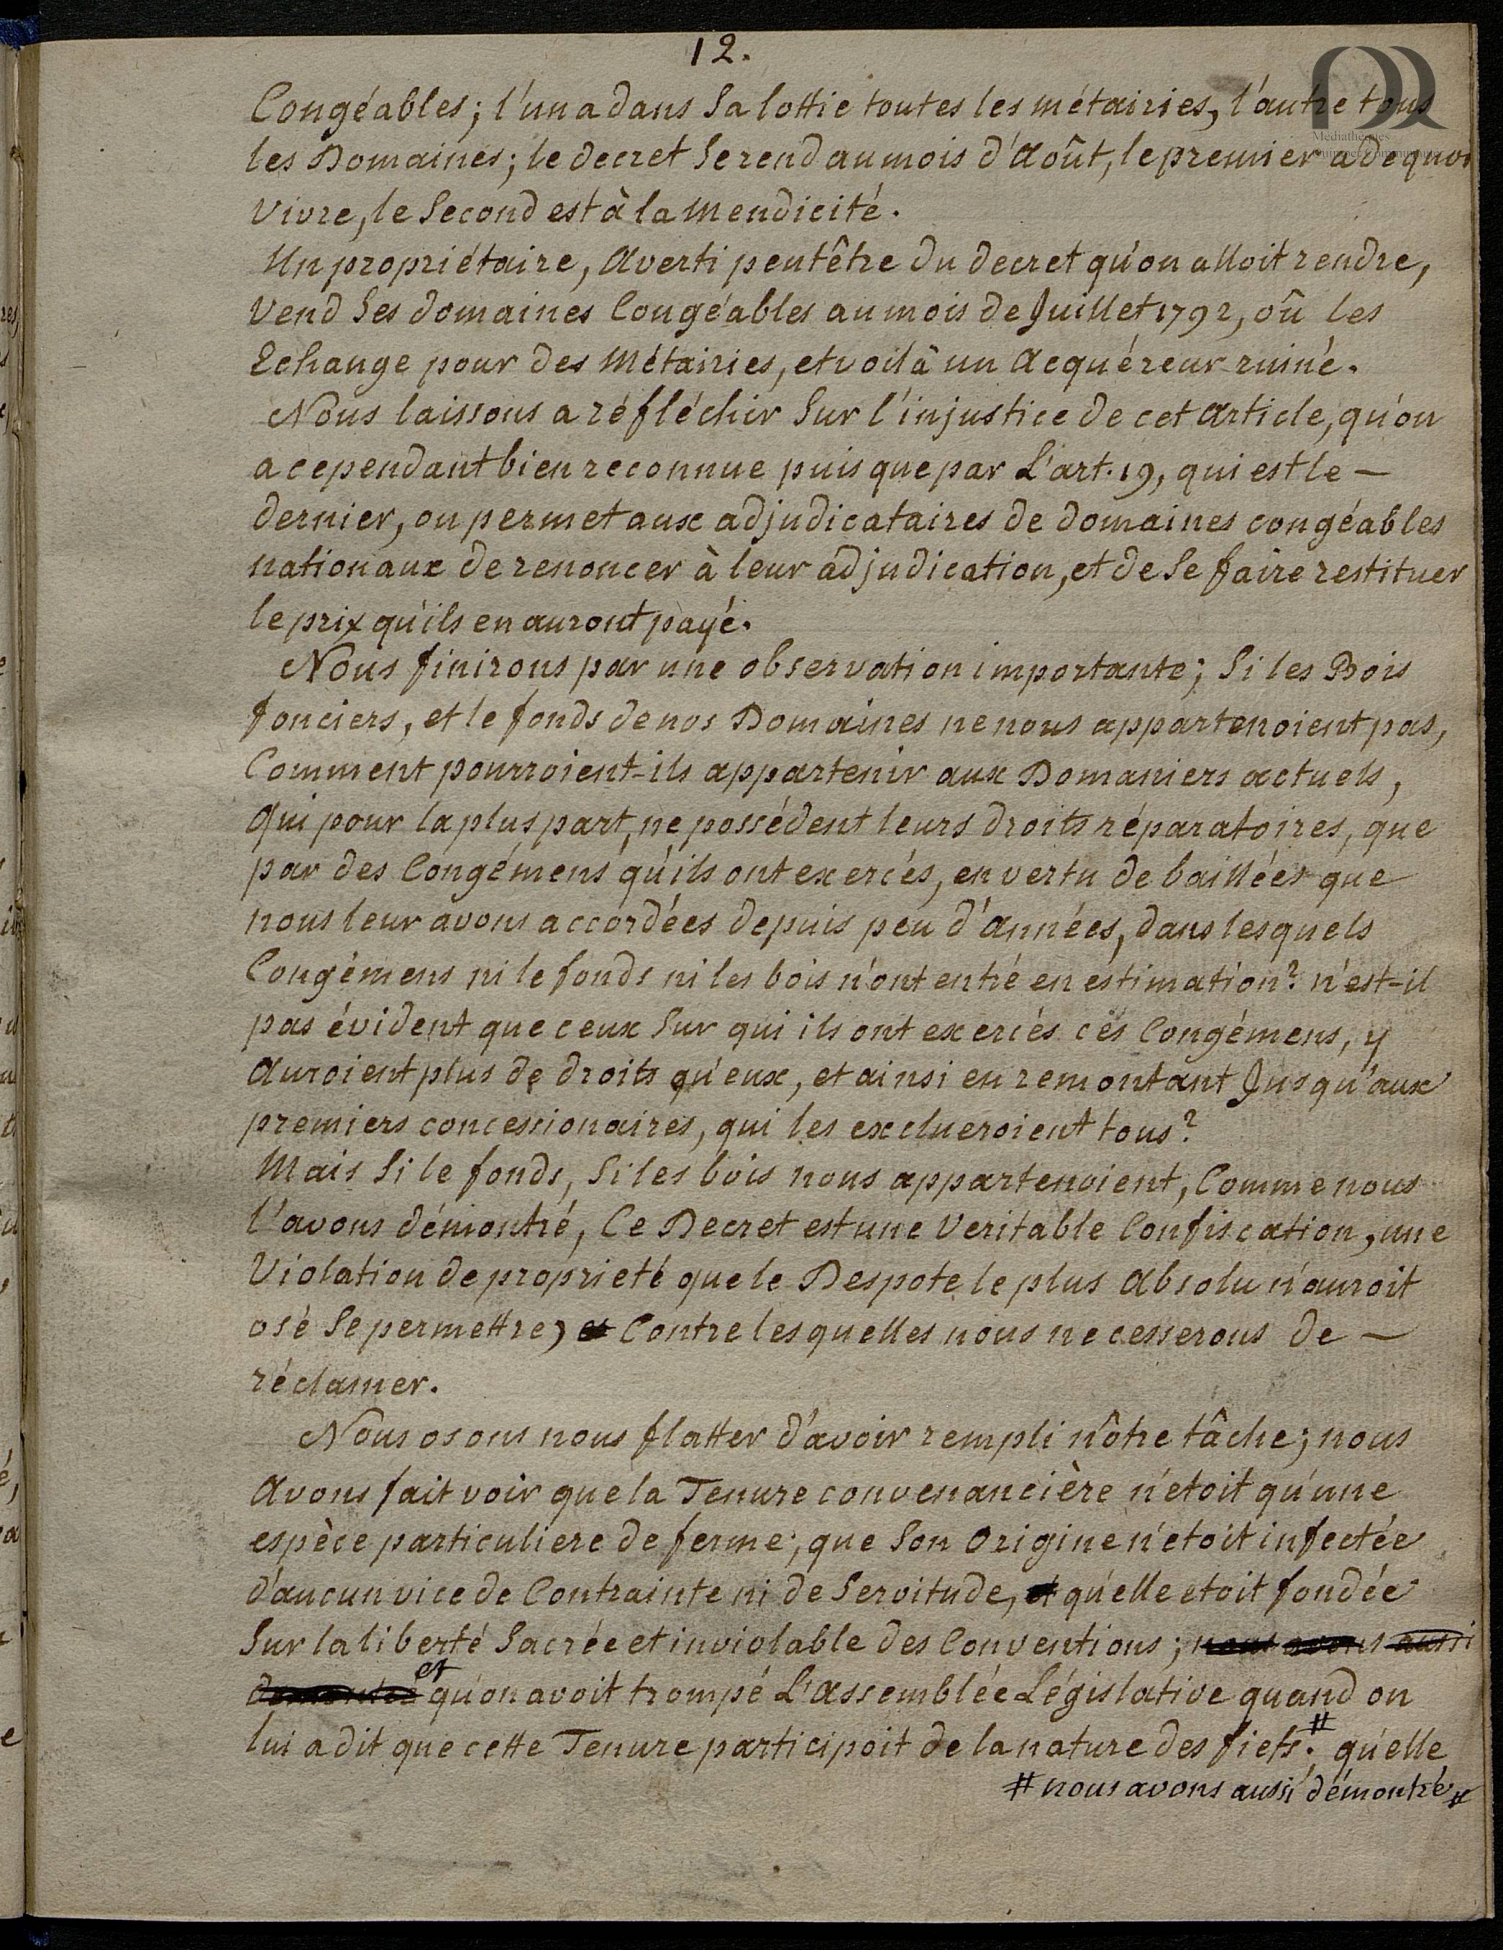 12.
Congéables; l'un a dans Sa lottie toutes les métairies, l'autre tous
les Domaines; le decret Se rend au mois d'Août, le premier a de quoi
Vivre, le Second est à la Mendicité.
Un propriétaire, Averti peutêtre du decret qu'on alloit rendre,
Vend Ses domaines Congéables au mois de Juillet 1792, oû les
Echange pour des Métairies, et voilà un Acquéreur ruiné.
Nous laissons a réfléchir Sur l'injustice de cet article, qu'on
a cependant bien reconnue puis que par L'art. 19, qui est le —
dernier, on permet aux adjudicataires de domaines congéables
nationaux de renoncer à leur adjudication, et de Se faire restituer
le prix qu'ils en auront payé.
Nous finirons par une observation importante; Si les Bois
fonciers, et le fonds de nos Domaines ne nous appartenoient pas,
Comment pourroient-ils appartenir aux Domaniers actuels,
Qui pour la plus part, ne possédent leurs droits réparatoires, que
par des Congémens qu'ils ont exercés, en vertu de baillées que
nous leur avons accordées depuis peu d'années, dans lesquels
Congémens ni le fonds ni les bois n'ont entré en estimation? n'est-il
pas évident que ceux Sur qui ils ont exercés ces Congémens, y
Auroient plus de droits qu'eux, et ainsi en remontant Jusqu'aux
premiers concessionaires, qui les exclueroient tous?
Mais Si le fonds, Si les bois nous appartenoient, Comme nous
l'avons démontré, Ce Decret est une Veritable Confiscation, une
Violation de proprieté que le Despote le plus Absolu n'auroit
osé Se permettre, et Contre lesquelles nous ne cesserons de —
réclamer.
Nous osons nous flatter d'avoir rempli nôtre tâche; nous
Avons fait voir que la Tenure convenancière n'étoit qu'une
espèce particuliere de ferme; que Son Origine n'étoit infectée
d'aucun vice de Contrainte ni de Servitude, et qu'elle etoit fondée
Sur la liberté Sacrée et inviolable des Conventions; nous avons aussi
démontré et qu'on avoit trompé L'Assemblée Législative quand on
lui a dit que cette Tenure participoit de la nature des fiefs; # qu'elle
# nous avons aussi démontré #
Médiathèques